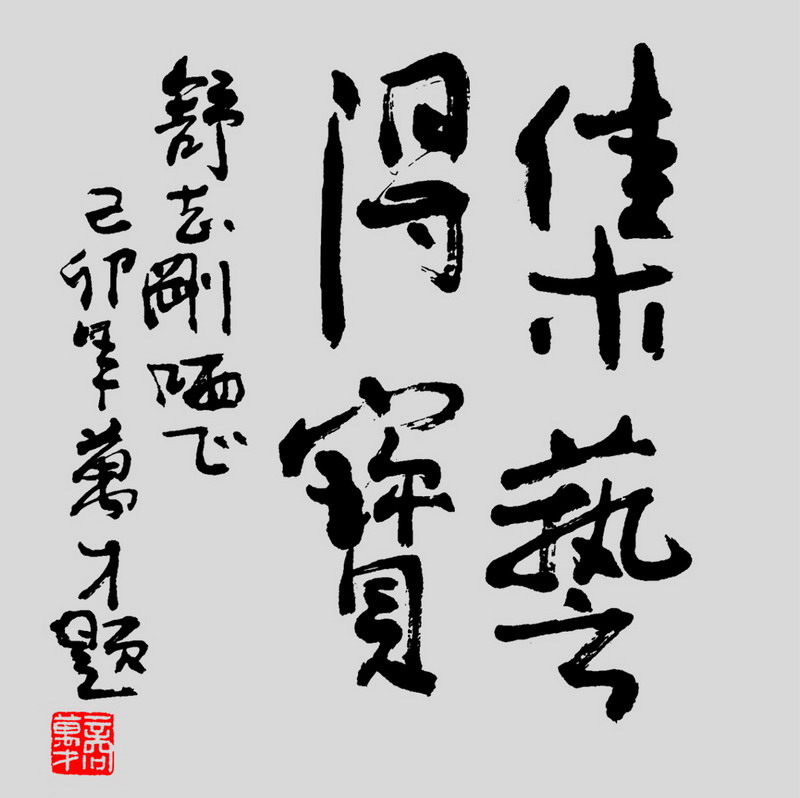 集藝
得寶
舒志剛哂正
己卯年萬才題
商萬才